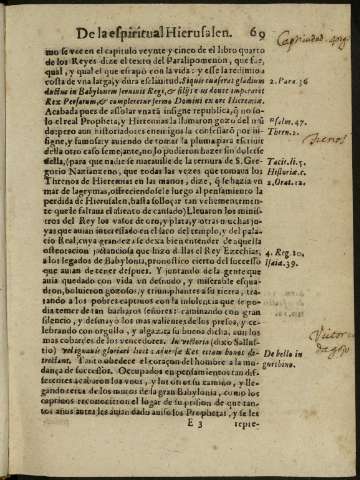 De la espiritual Hierusalen. 69
mo se vee en el capitulo veynte y cinco de el libro quarto
de los Reyes dize el texto del Paralipomenon, que fue,
qual, y qual el que escapò con la vida: y esse la redimio a
costa de vna larga, y dura esclauitud. Siquis euaserat gladium
ductus in Babylonem seruiuit Regi, & filijs eius donec imperaret
Rex Persarum, & compleretur sermo Domini ex ore Hieremiæ.
2. Para. 36
Acabada pues de assolar vna tã insigne republica, q̃ no so-
lo el real Propheta, y Hieremias la llamaron gozo del mũ
Psalm. 47.
do: pero aun historiadores enemigos la confessarõ por in-
Thren. 2.
signe, y famosa: y auiendo de tomar la pluma para escriuir
della otro caso semejante, no lo pudieron hazer sin dolerse
della, (para que nadie se marauille de la ternura de S. Gre-
Tacit. li. 5.
gorio Nazianzeno, que todas las vezes que tomaua los
Historia. c.
Threnos de Hieremias en las manos, dize, q̃ se bañaua en
2. Orat. 12.
mar de lagrymas, ofreciendosele luego al pensamiento la
perdida de Hierusalen, hasta solloçar tan vehementemen-
te que le faltaua el aliento de cansado) Lleuaron los minis-
tros del Rey los vasos de oro, y plata, y otras muchas jo-
yas que auian interessado en el saco del templo, y del pala-
cio Real, cuya grandeza se dexa bien entender de aquella
ostentacion jactanciosa que hizo d'ellas el Rey Ezechias,
4. Reg. 20.
a los legados de Babylonia, pronostico cierto del successo
Isaiæ. 39.
que auian de tener despues. Y juntando de la gente que
auia quedado con vida vn desnudo, y miserable esqua-
dron, boluieron gozosos, y triumphantes a su tierra, tra-
tando a los pobres captiuos con la insolencia que se po-
dia temer de tan barbaros señores: caminando con gran
silencio, y desmayo los mas valientes de los presos, y ce-
lebrando con orgullo, y algazara su buena dicha, aun los
mas cobardes de los vencedores. In victoria (dixo Sallus-
tio) vel ignauis gloriari licet: aduersæ Res etiam bonos de-
De bello in
trectant. Tanto obedece el coraçon del hombre a la mu-
gurthino.
dança de successos. Ocupados en pensamientos tan dif-
ferentes acabaron los vnos, y los otros su camino, y lle-
gando cerca de los muros de la gran Babylonia, como los
captiuos reconociesen el lugar de su prision de que tan-
tos años antes les auian dado auiso los Prophetas, y se les
E 3 repre-